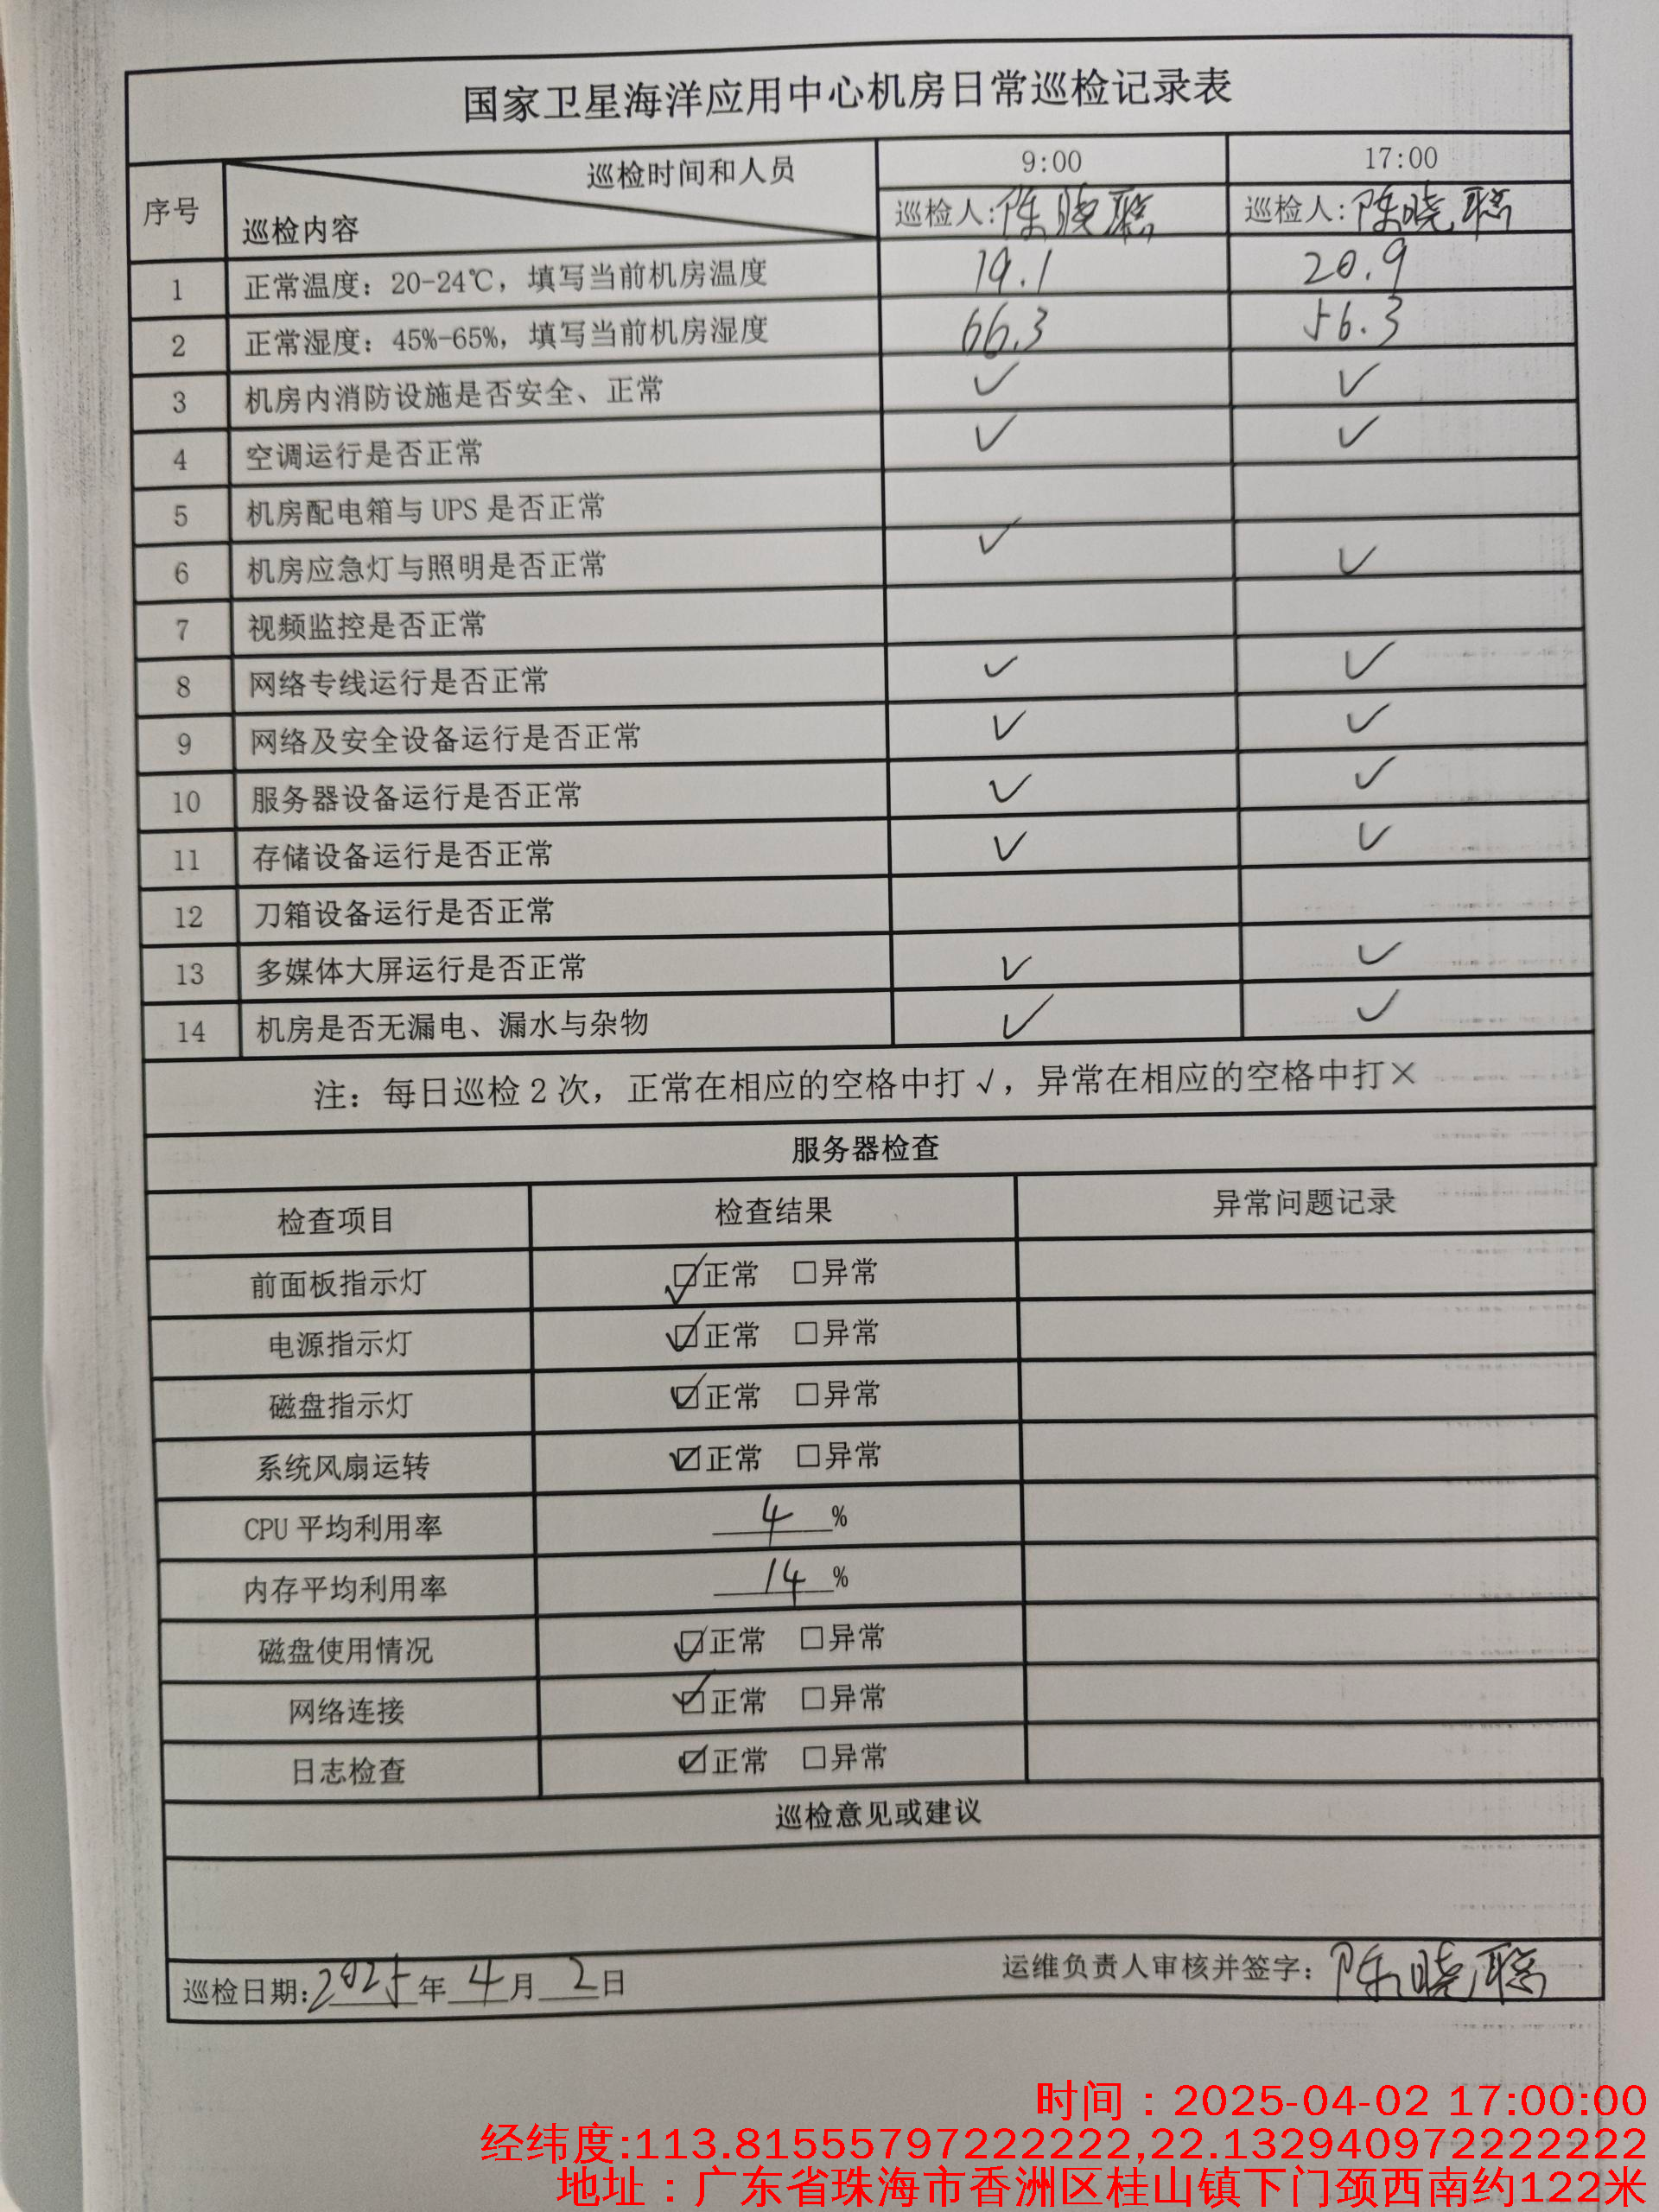 国家卫星海洋应用中心机房日常巡检记录表
序号 巡检时间和人员 巡检内容 9:00 17:00
巡检人:陈晓聪 巡检人:陈晓聪
1 正常温度：20-24℃，填写当前机房温度 19.1 20.9
2 正常湿度：45%-65%，填写当前机房湿度 66.3 56.3
3 机房内消防设施是否安全、正常 ✓ ✓
4 空调运行是否正常 ✓ ✓
5 机房配电箱与 UPS 是否正常
6 机房应急灯与照明是否正常 ✓ ✓
7 视频监控是否正常
8 网络专线运行是否正常 ✓ ✓
9 网络及安全设备运行是否正常 ✓ ✓
10 服务器设备运行是否正常 ✓ ✓
11 存储设备运行是否正常 ✓ ✓
12 刀箱设备运行是否正常
13 多媒体大屏运行是否正常 ✓ ✓
14 机房是否无漏电、漏水与杂物 ✓ ✓
注：每日巡检 2 次，正常在相应的空格中打√，异常在相应的空格中打×
服务器检查
检查项目 检查结果 异常问题记录
前面板指示灯 ☑正常 □异常
电源指示灯 ☑正常 □异常
磁盘指示灯 ☑正常 □异常
系统风扇运转 ☑正常 □异常
CPU 平均利用率 4%
内存平均利用率 14%
磁盘使用情况 ☑正常 □异常
网络连接 ☑正常 □异常
日志检查 ☑正常 □异常
巡检意见或建议
巡检日期:2025年4月2日 运维负责人审核并签字：陈晓聪
时间：2025-04-02 17:00:00
经纬度:113.81555797222222,22.132940972222222
地址：广东省珠海市香洲区桂山镇下门颈西南约122米